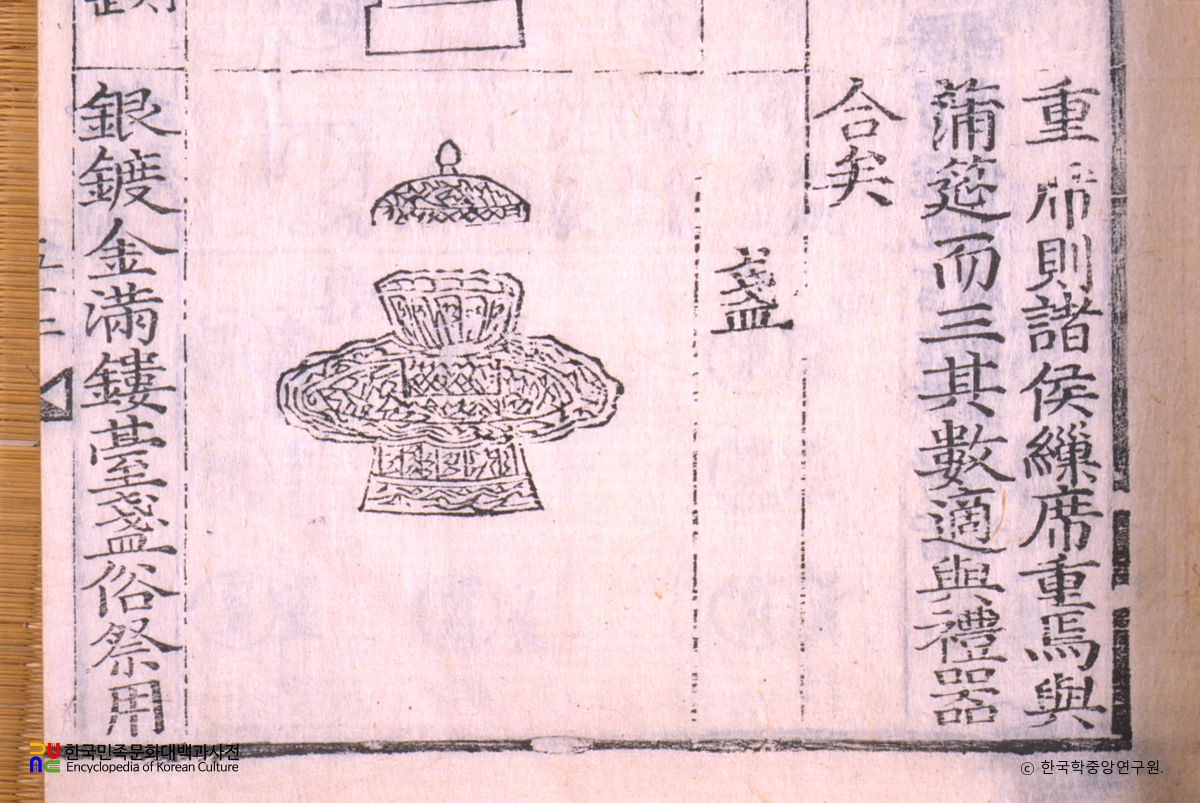 重席則諸侯繅席重焉與
蒲筵而三其數適與禮器
合矣
盞
銀鍍金滿鏤臺盞俗祭用
한국민족문화대백과사전
Encyclopedia of Korean Culture
ⓒ 한국학중앙연구원.